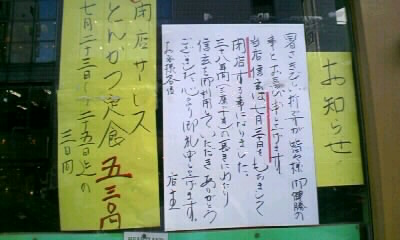 お知らせ
暑さきびしい折ですが皆々様の御健勝の
事とお喜び申し上げます
当店信玄は七月三十日をもちまして
閉店する事になりました。
三十八年間
信玄を御利用いただきありがとう
ございました 心より御礼申し上げます。
お客様各位
店主
閉店サービス
とんかつ定食 五三〇円
七月二十三日〜二十五日迄の
三日間